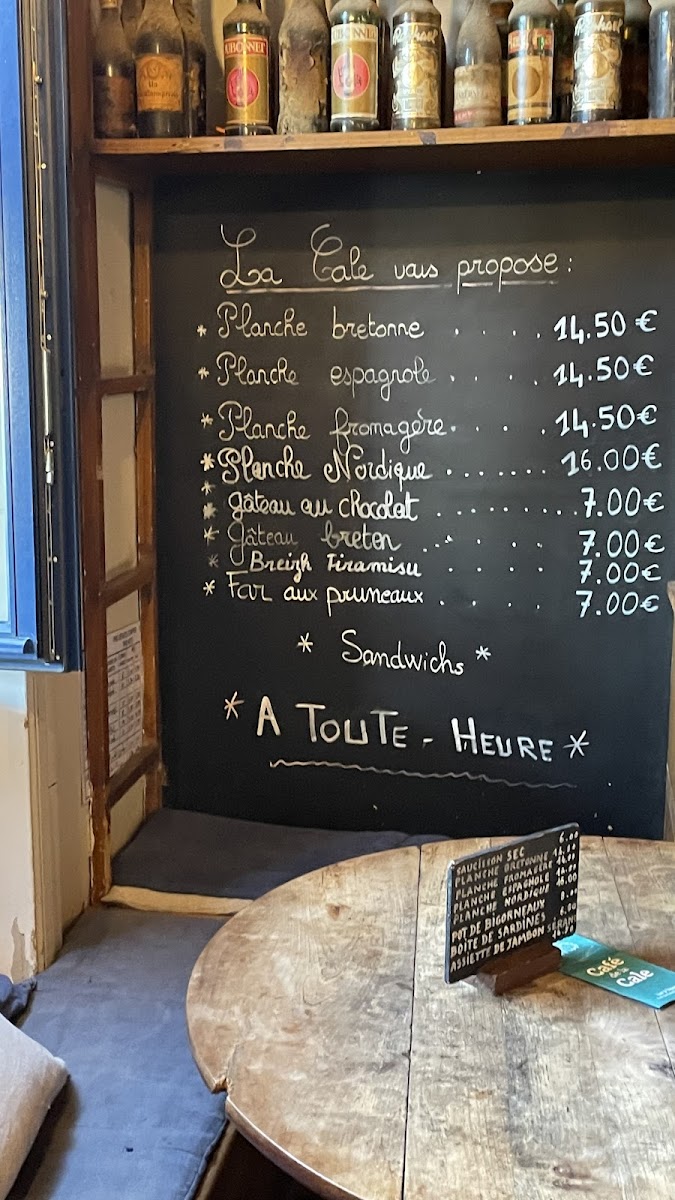 La Cale vous propose :
* Planche bretonne . . . . 14.50 €
* Planche espagnole . . . . 14.50€
* Planche fromagère. . . . 14.50€
* Planche Nordique ....... 16.00€
* gâteau au chocolat ......... 7.00€
* Gâteau breton ... . . . 7.00€
* Breizh Tiramisu . . . . 7.00€
* Far aux pruneaux . . . . 7.00€
* Sandwichs *
* A TOUTE - HEURE *
SAUCISSON SEC 6.00
PLANCHE BRETONNE
PLANCHE FROMAGÈRE
PLANCHE ESPAGNOLE
PLANCHE NORDIQUE
POT DE BIGORNEAUX
BOÎTE DE SARDINES
ASSIETTE DE JAMBON
Café
de la
Cale